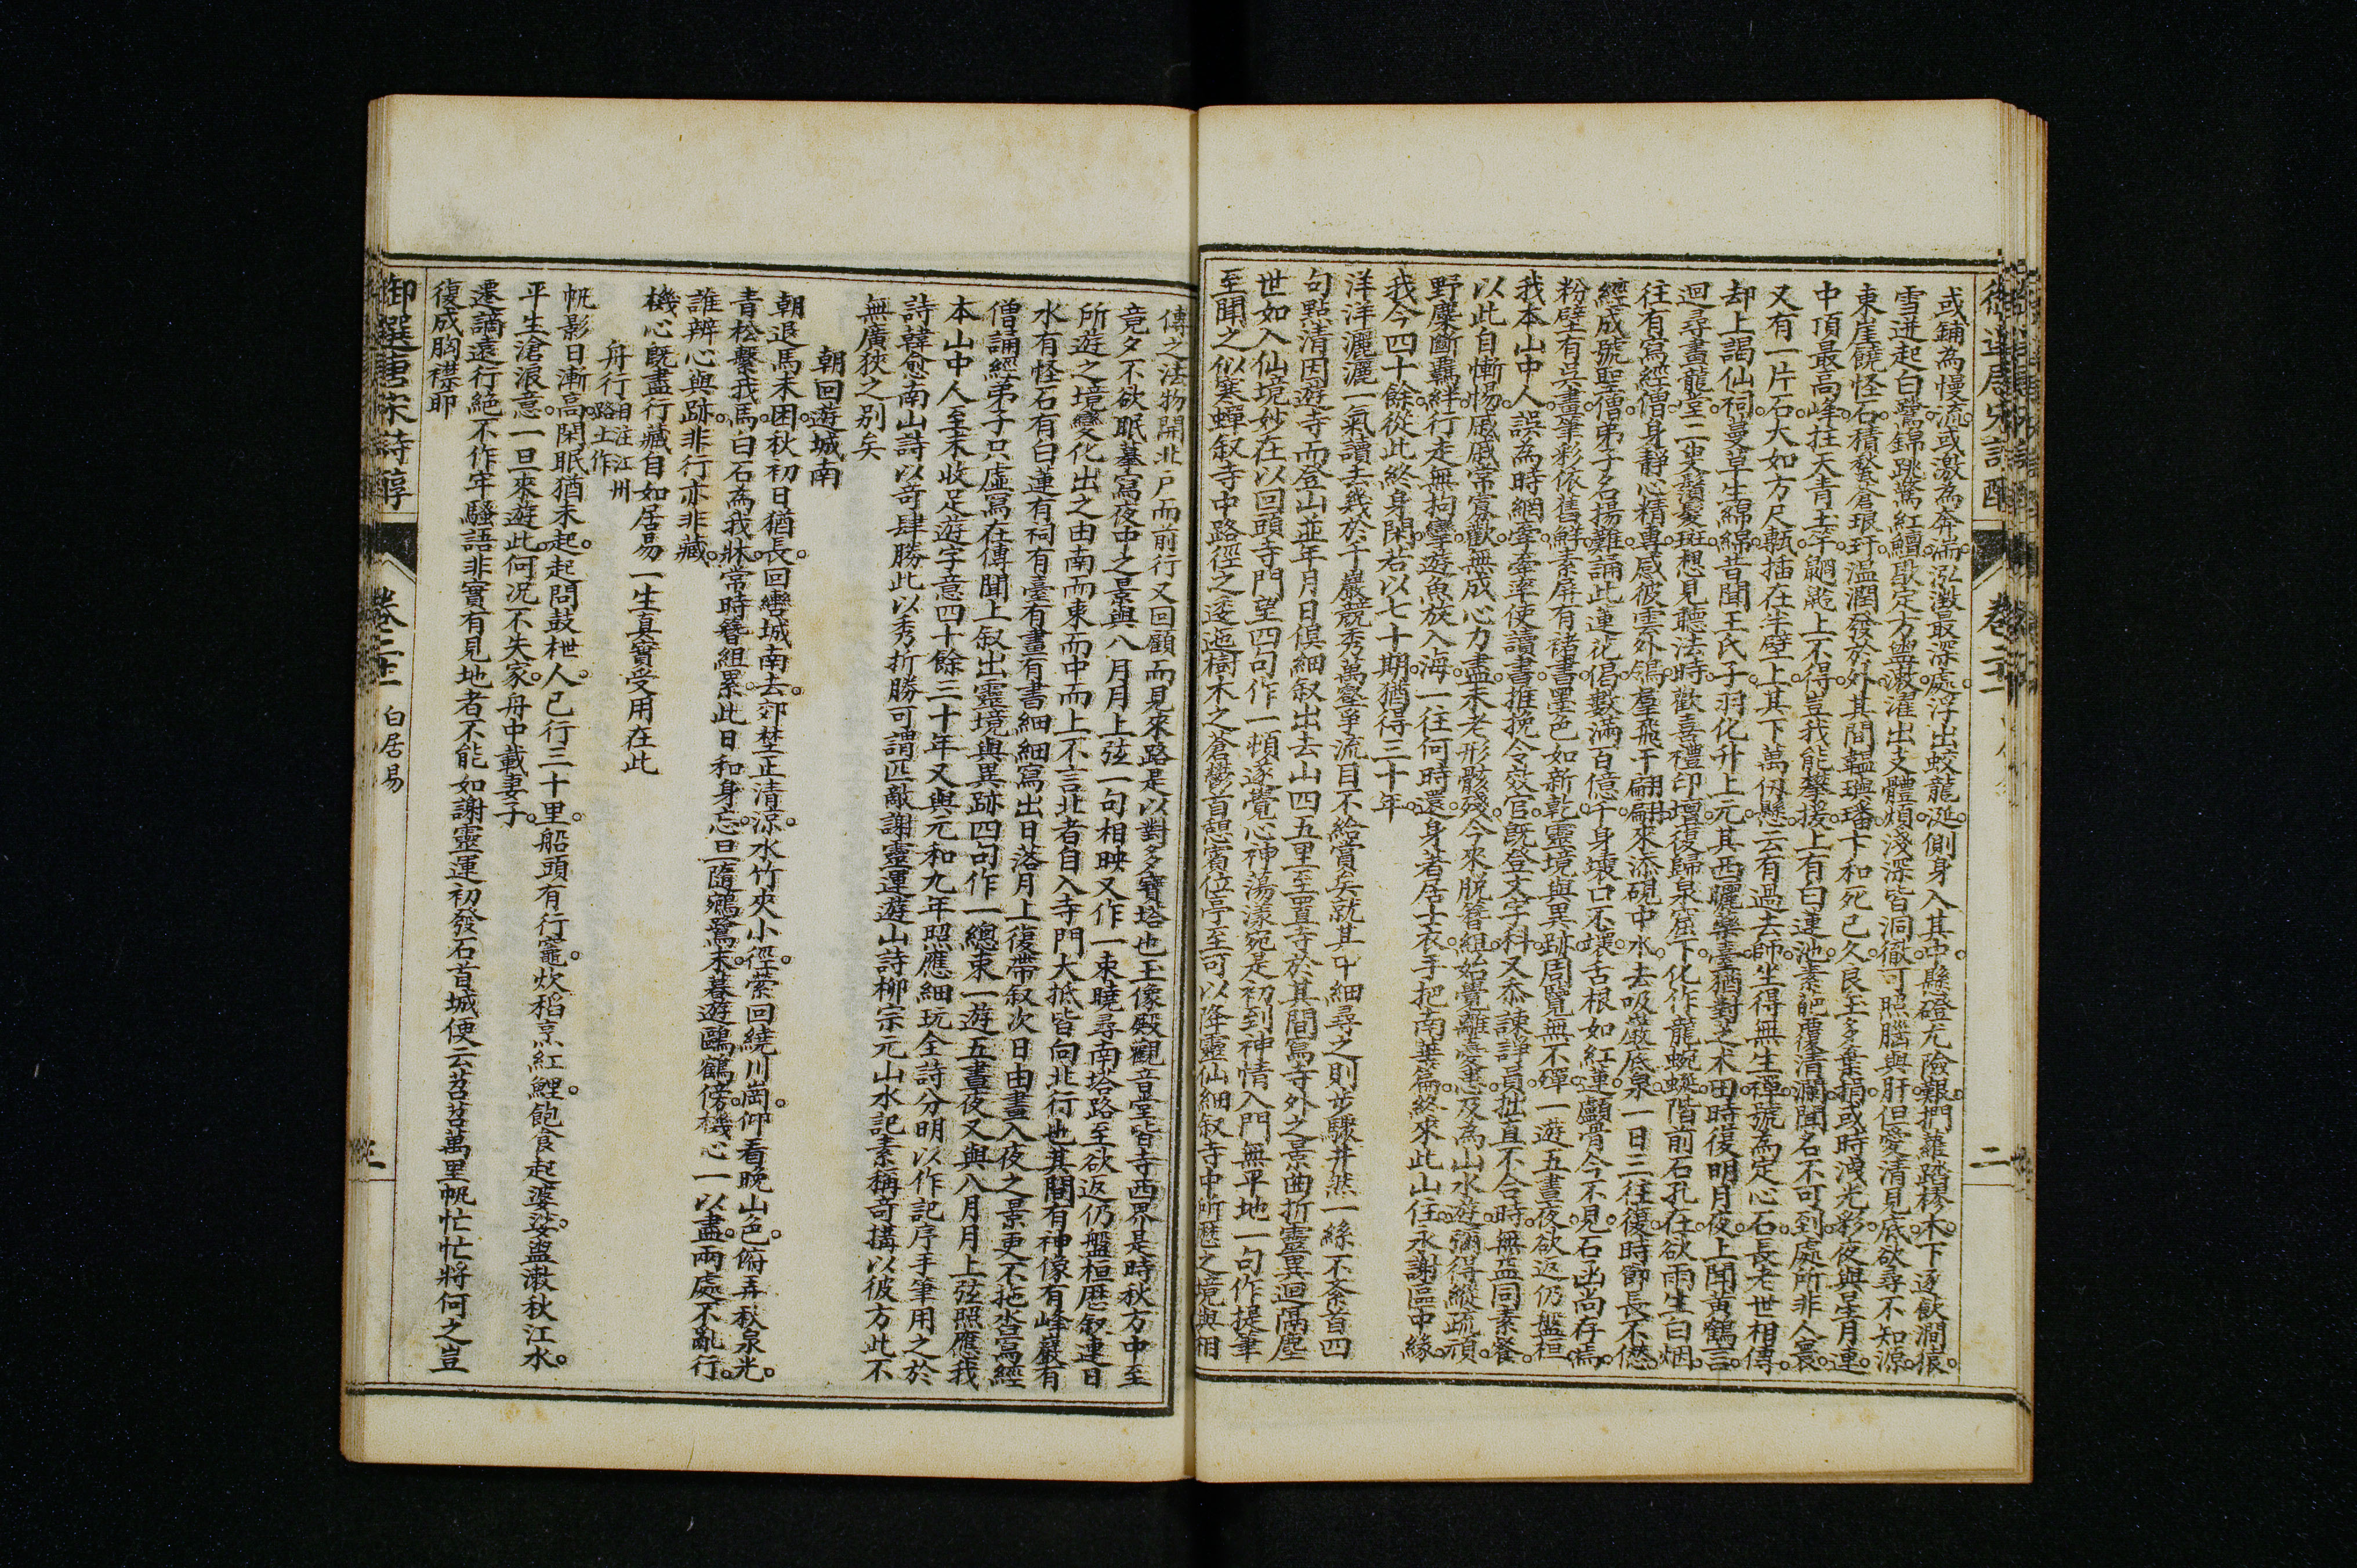 或鋪為慢流或激為奔湍泓澂最深處浮出蛟龍涎側身入其中懸磴尤險艱捫蘿踏樛木下逐飲澗猿
雪迸起白鷺錦跳驚紅鱣歇定方盥漱濯出支體煩淺深皆洞徹可照腦與肝但愛清見底欲尋不知源
東崖饒怪石積甃蒼琅玕溫潤發於外其間韞璵璠卞和死已久良玉多棄捐或時洩光彩夜與星月連
中頂最高峰拄天青玉竿䶄䶈上不得豈我能攀援上有白蓮池素葩覆清瀾聞名不可到處所非人寰
又有一片石大如方尺甎插在半壁上其下萬仞懸云有過去師坐得無生禪號為定心石長老世相傳
却上謁仙祠蔓草生綿綿昔聞王氏子羽化升上元其西曬藥臺猶對芝朮田時復明月夜上聞黃鶴言
迴尋畫龍堂二叟鬢髮斑想見聽法時歡喜禮印壇復歸泉窟下化作龍蜿蜒階前石孔在欲雨生白烟
往有寫經僧身靜心精專感彼雲外鴿羣飛千翩翩來添硯中水去吸巖底泉一日三往復時節長不愆
經成號聖僧弟子名揚難誦此蓮花偈數滿百億千身壞口不壞舌根如紅蓮顱骨今不見石函尚存焉
粉壁有吳畫筆彩依舊鮮素屏有褚書墨色如新乾靈境與異跡周覽無不殫一遊五晝夜欲返仍盤桓
我本山中人誤為時網牽牽率使讀書推挽令效官既登文字科又忝諫諍員拙直不合時無益同素餐
以此自慚惕戚戚常寡歡無成心力盡未老形骸殘今來脫簪組始覺離憂患及為山水遊彌得縱疏頑
野麋斷羈絆行走無拘攣池魚放入海一往何時還身著居士衣手把南華篇終來此山住永謝區中緣
我今四十餘從此終身閑若以七十期猶得三十年
洋洋灑灑一氣讀去幾於千巖競秀萬壑爭流目不給賞矣就其中細尋之則步驟井然一絲不紊首四
句點清因遊寺而登山並年月日俱細敘出去山四五里至置寺於其間寫寺外之景曲折靈異迴隔塵
世如入仙境妙在以回頭寺門望四句作一頓遂覺心神蕩漾宛是初到神情入門無平地一句作提筆
至聞之似寒蟬敘寺中路徑之逶迤樹木之蒼鬱首憩賓位亭至可以降靈仙細敘寺中所歷之境與相
傳之法物開北戶而前行又回顧而見來路是以對多寶塔也玉像殿觀音堂皆寺西界是時秋方中至
竟夕不欲眠摹寫夜中之景與八月月上弦一句相映又作一束曉尋南塔路至欲返仍盤桓歷敘連日
所遊之境變化出之由南而東而中而上不言北者自入寺門大抵皆向北行也其間有神像有峰巖有
水有怪石有白蓮有祠有臺有畫有書細細寫出日落月上復帶敘次日由晝入夜之景更不拖沓寫經
僧誦經弟子只虛寫在傳聞上敘出靈境與異跡四句作一總束一遊五晝夜又與八月月上弦照應我
本山中人至末收足遊字意四十餘三十年又與元和九年照應細玩全詩分明以作記序手筆用之於
詩韓愈南山詩以奇肆勝此以秀折勝可謂匹敵謝靈運遊山詩柳宗元山水記素稱奇搆以彼方此不
無廣狹之別矣
朝回遊城南
朝退馬未困秋初日猶長回轡城南去郊埜正清涼水竹夾小徑縈回繞川崗仰看晚山色俯弄秋泉光
青松繫我馬白石為我牀常時簪組累此日和身忘旦隨鵷鷺末暮遊鷗鶴傍機心一以盡兩處不亂行
誰辨心與跡非行亦非藏
機心既盡行藏自如居易一生真實受用在此
舟行自注江州路上作
帆影日漸高閑眠猶未起起問鼓枻人已行三十里船頭有行竈炊稻烹紅鯉飽食起婆娑盥漱秋江水
平生滄浪意一旦來遊此何況不失家舟中載妻子
遷謫遠行絕不作牢騷語非實有見地者不能如謝靈運初發石首城便云苕苕萬里帆忙忙將何之豈
復成胸襟耶
御選唐宋詩醇
卷二十一 白居易